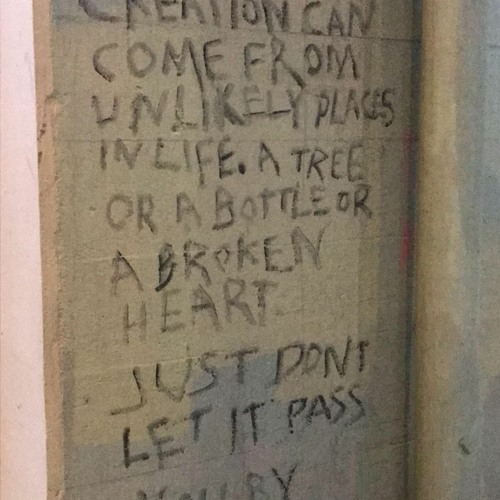 CREATION CAN
COME FROM
UNLIKELY PLACES
IN LIFE. A TREE
OR A BOTTLE OR
A BROKEN
HEART.
JUST DONT
LET IT PASS
YOU BY